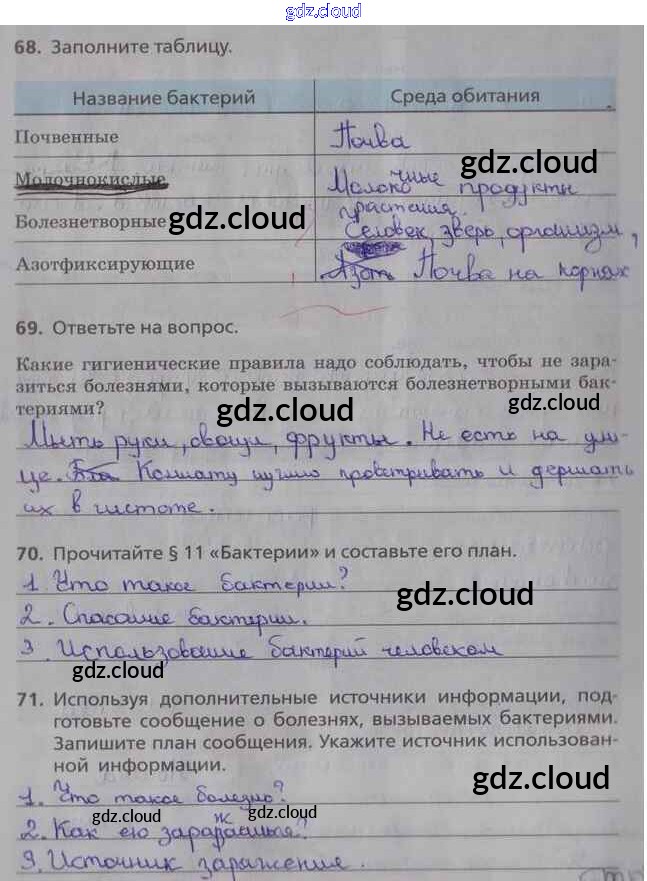 gdz.cloud
68. Заполните таблицу.
Название бактерий Среда обитания
Почвенные Почва
gdz.cloud
Молочнокислые Молочные продукты
растения.
Болезнетворные gdz.cloud Человек, зверь, организм,
Азотфиксирующие Азот Почва на корнях
69. Ответьте на вопрос.
Какие гигиенические правила надо соблюдать, чтобы не зара-
зиться болезнями, которые вызываются болезнетворными бак-
териями?
gdz.cloud gdz.cloud
Мыть руки, овощи, фрукты. Не есть на ули-
це. Комнату нужно проветривать и держать
их в чистоте.
70. Прочитайте § 11 «Бактерии» и составьте его план.
1. Что такое бактерии?
gdz.cloud
2. Спасение бактерии.
3. Использование бактерий человеком
gdz.cloud
71. Используя дополнительные источники информации, под-
готовьте сообщение о болезнях, вызываемых бактериями.
Запишите план сообщения. Укажите источник использован-
ной информации.
gdz.cloud
1. Что такое болезнь?
gdz.cloud gdz.cloud
2. Как ею
3. Источник заражение.